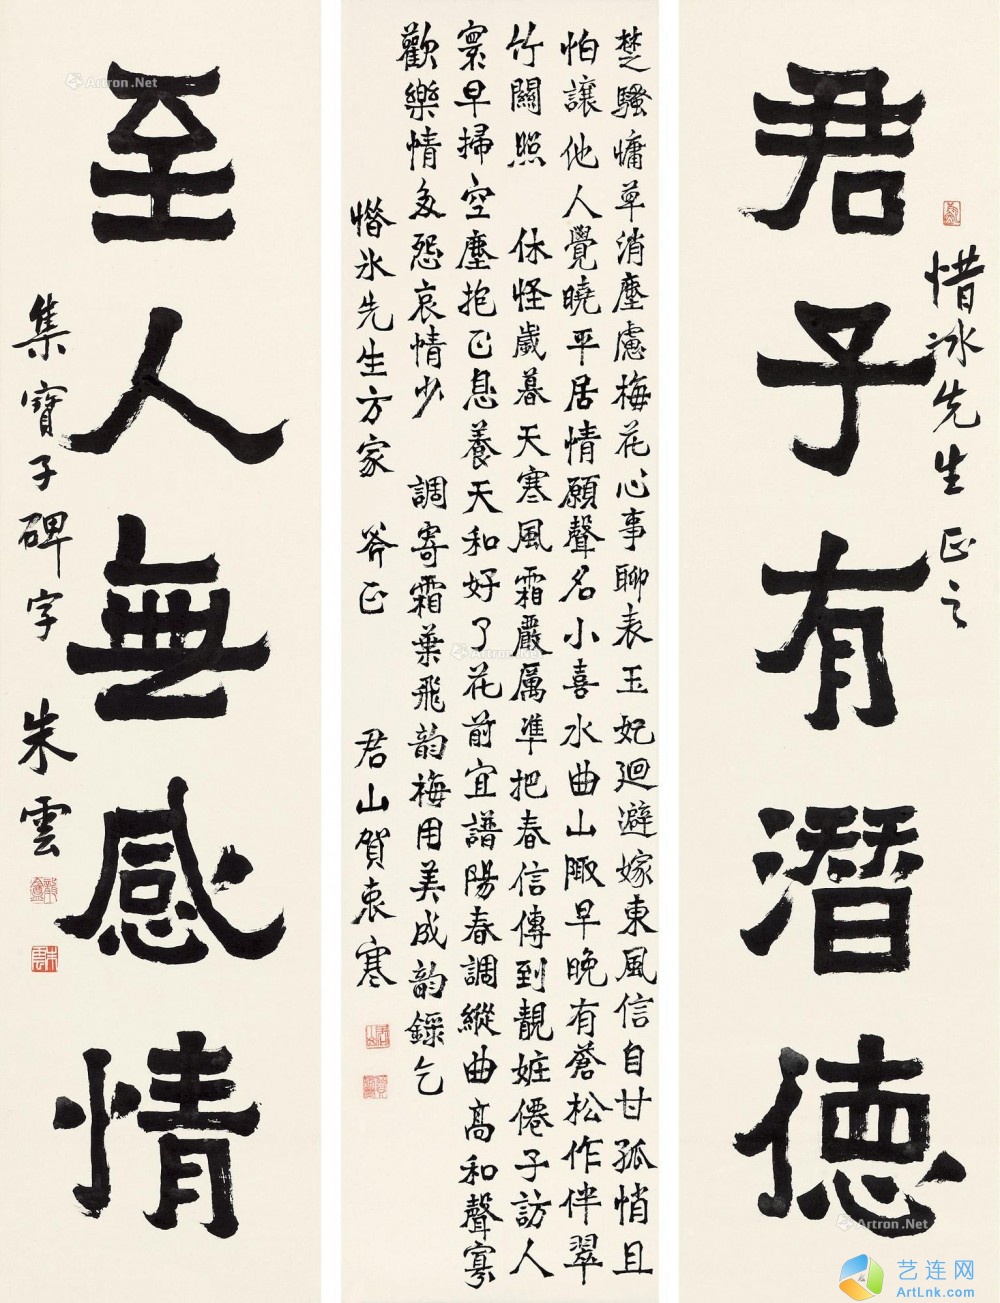 君子有潛德
惜冰先生正之
楚騷慵草消塵慮梅花心事聊表玉妃迴避嫁東風信自甘孤悄且
怕讓他人覺曉平居情願聲名小喜水曲山陬早晚有蒼松作伴翠
竹關照 休怪歲暮天寒風霜嚴厲準把春信傳到靚妝僊子訪人
寰早掃空塵抱正息養天和好了花前宜譜陽春調縱曲高和聲寡
歡樂情多怨哀情少 調寄霜葉飛韵梅用美成韵錄乞
惜冰先生方家 斧正 君山賀衷寒
至人無感情
集寶子碑字 朱雲
Artron.Net
Artron.Net
Artron.Net
艺连网
ArtLnk.com